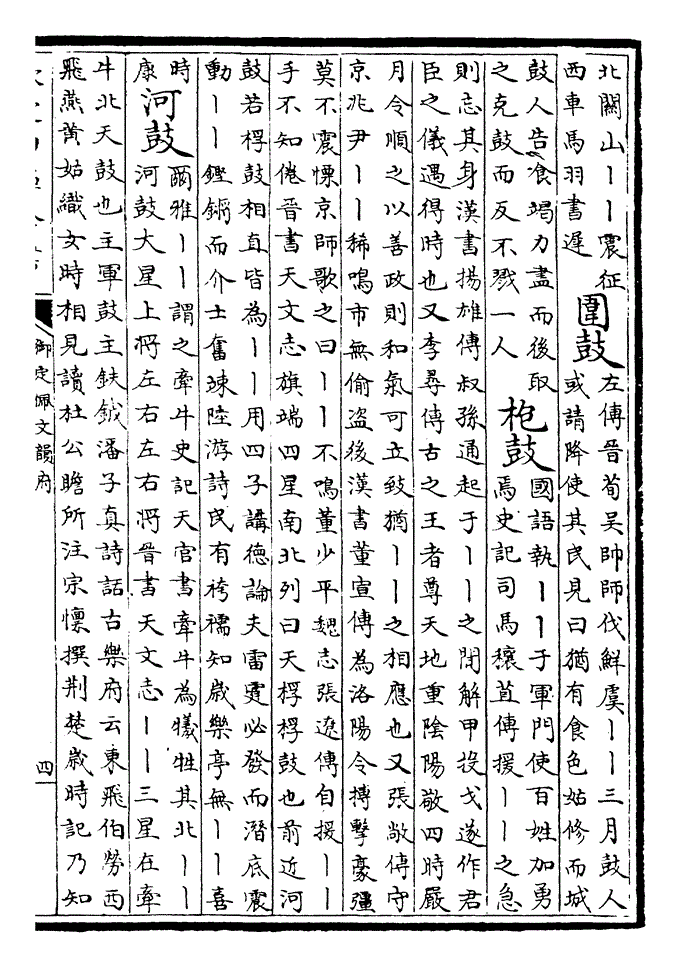 北關山丨丨震征
西車馬羽書遲
圍鼓
左傳晉荀吳帥師伐鮮虞丨丨三月鼓人
或請降使其民見曰猶有食色姑修而城
鼓人告食竭力盡而後取
之克鼓而反不戮一人
枹鼓
國語執丨丨于軍門使百姓加勇
焉史記司馬穰苴傳援丨丨之急
則忘其身漢書揚雄傳叔孫通起于丨丨之間解甲投戈遂作君
臣之儀遇得時也又李尋傳古之王者尊天地重陰陽敬四時嚴
月令順之以善政則和氣可立致猶丨丨之相應也又張敞傳守
京兆尹丨丨稀鳴市無偷盗後漢書董宣傳為洛陽令搏擊豪彊
莫不震慄京師歌之曰丨丨不鳴董少平魏志張遼傳自援丨丨
手不知倦晉書天文志旗端四星南北列曰天桴桴鼓也前近河
鼓若桴鼓相直皆為丨丨用四子講德論夫雷霆必發而潛底震
動丨丨鏗鏘而介士奮竦陸游詩民有袴襦知歲樂亭無丨丨喜
時
康
河鼓
爾雅丨丨謂之牽牛史記天官書牽牛為犧牲其北丨丨
河鼓大星上將左右左右將晉書天文志丨丨三星在牽
牛北天鼓也主軍鼓主鈇鉞潘子真詩話古樂府云東飛伯勞西
飛燕黃姑織女時相見讀杜公瞻所注宗懍撰荆楚歲時記乃知
御定佩文韻府
四